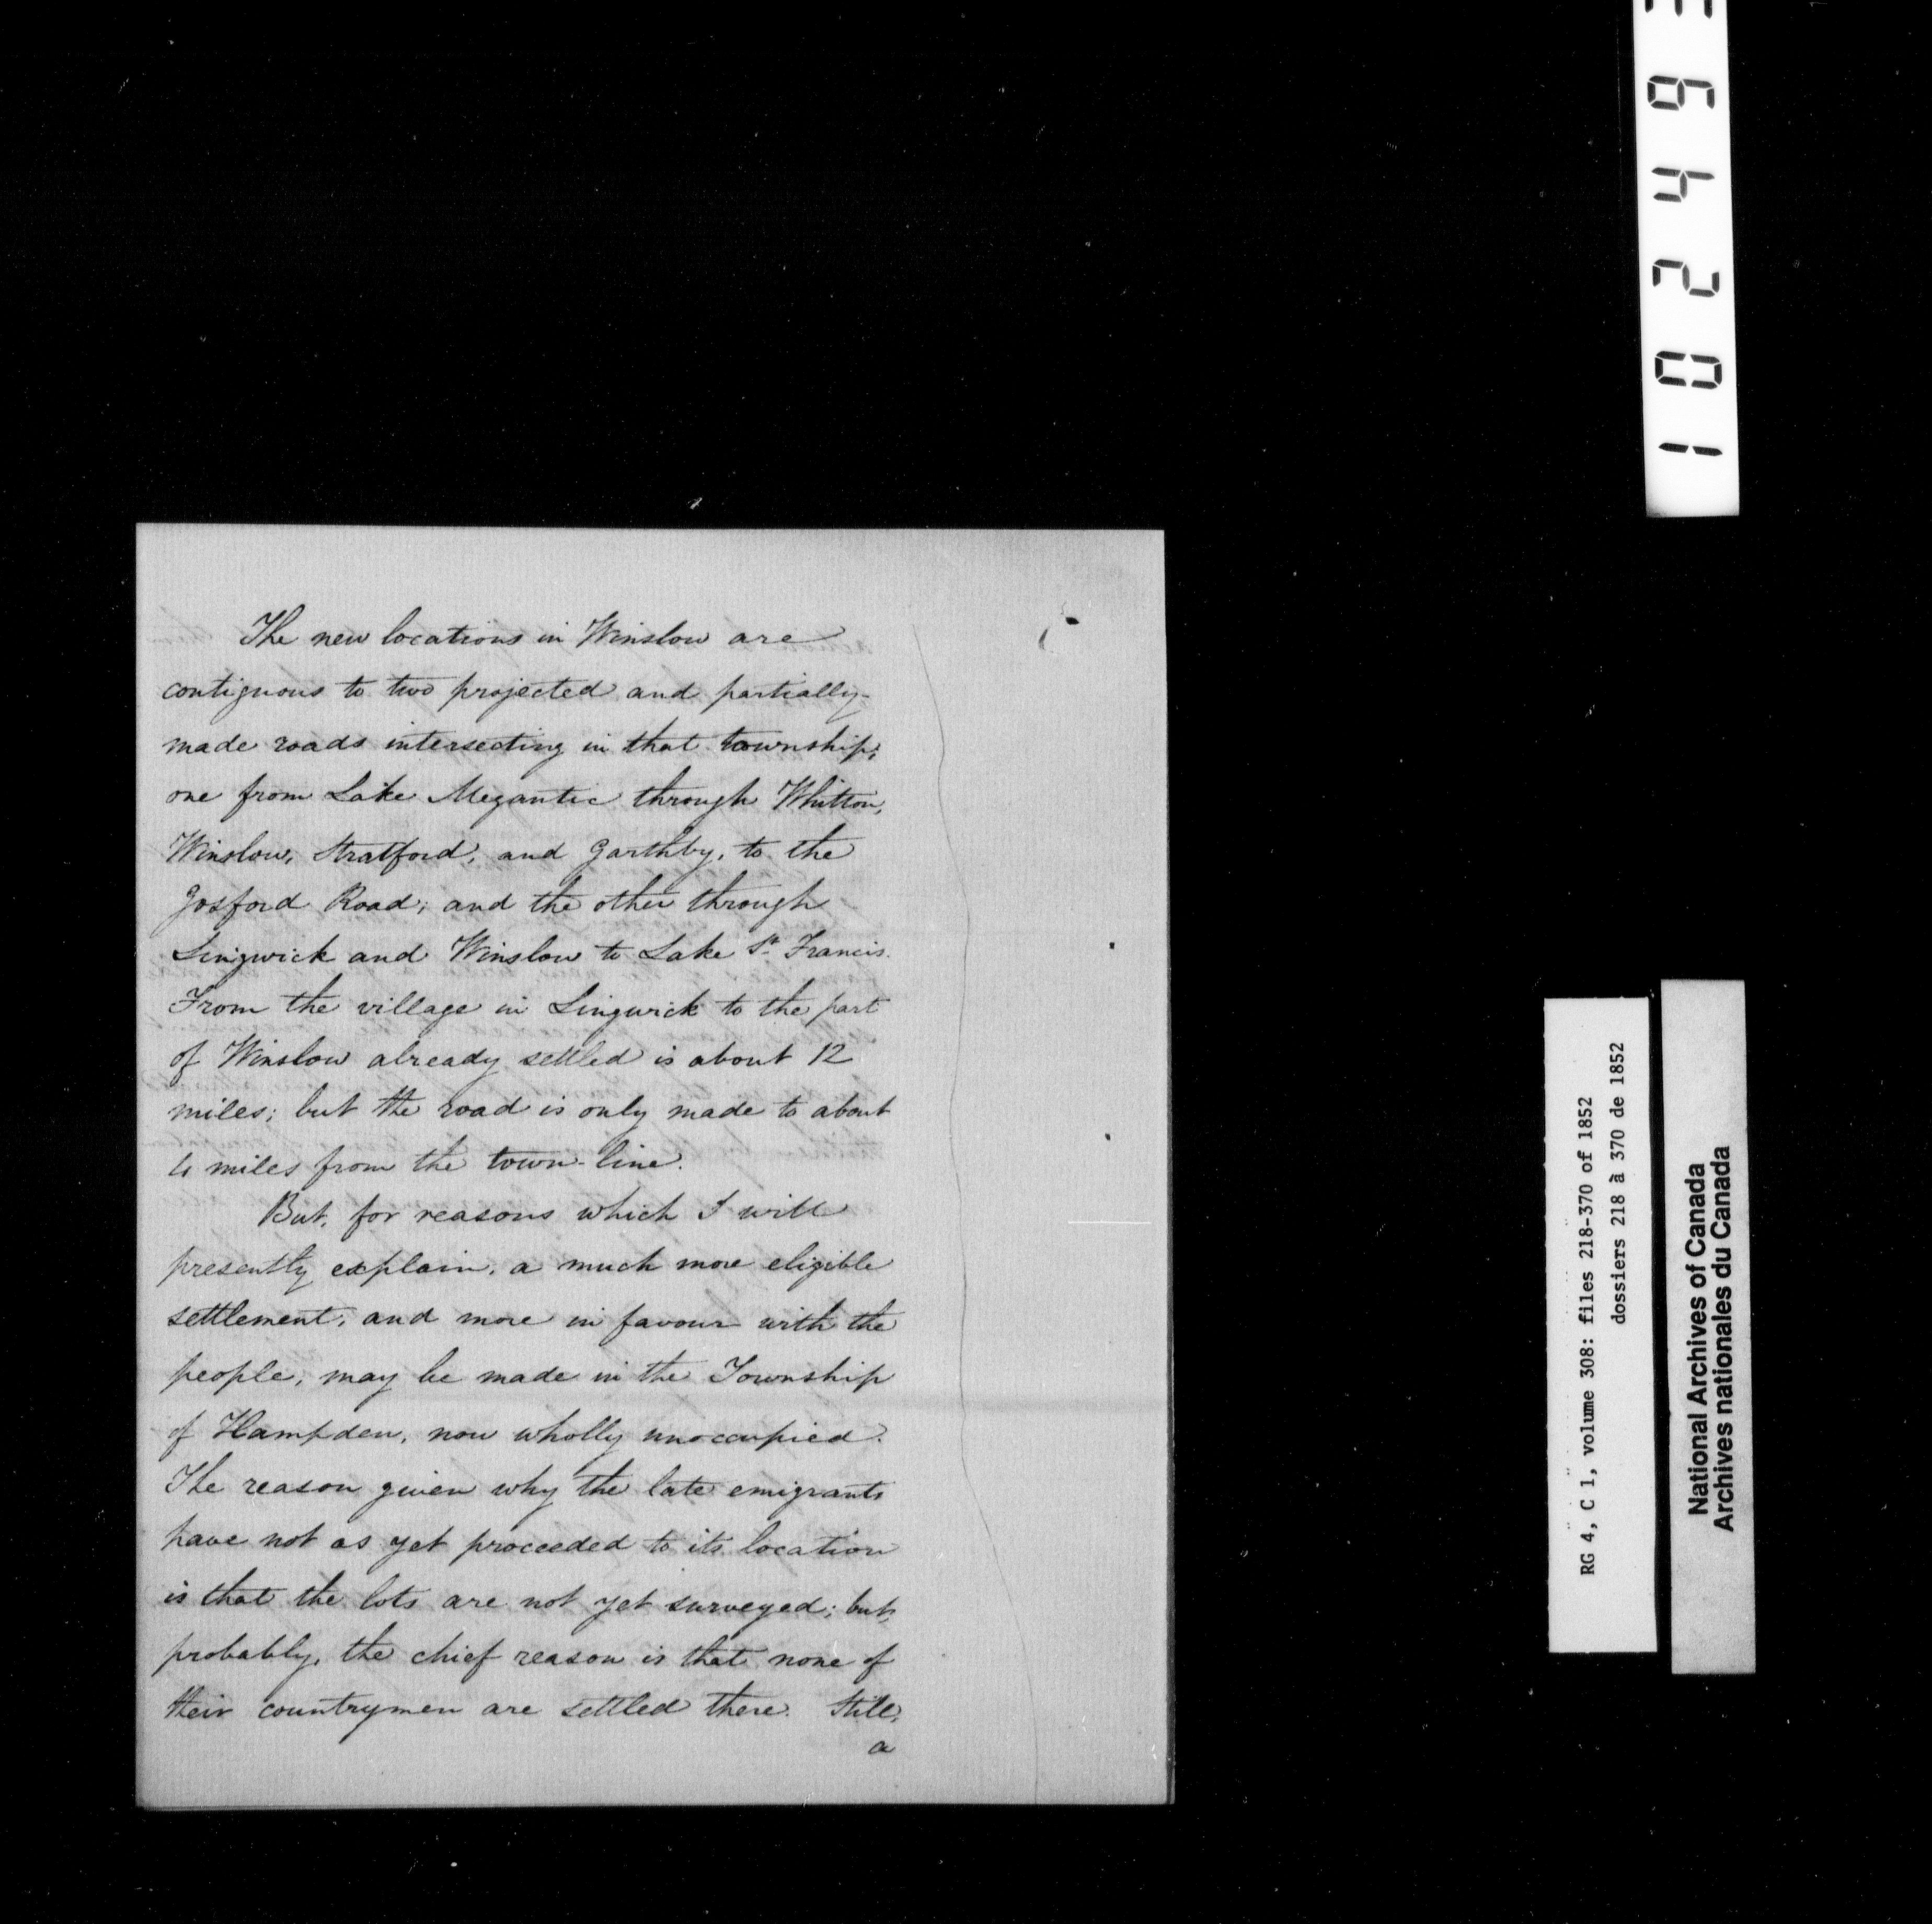 The new locations in Winslow are
contiguous to two projected and partially-
made roads intersecting in that township;
one from Lake Megantic through Whitton,
Winslow, Stratford, and Garthby, to the
Gosford Road; and the other through
Lingwick and Winslow to Lake St. Francis.
From the village in Lingwick to the part
of Winslow already settled is about 12
miles; but the road is only made to about
4 miles from the town-line.
But, for reasons which I will
presently explain, a much more eligible
settlement, and more in favour with the
people, may be made in the Township
of Hampden, now wholly unoccupied.
The reason given why the late emigrants
have not as yet proceeded to its location
is that the lots are not yet surveyed; but,
probably, the chief reason is that none of
their countrymen are settled there. Still,
a
10249
RG 4, C 1, volume 308: files 218-370 of 1852
dossiers 218 à 370 de 1852
National Archives of Canada
Archives nationales du Canada